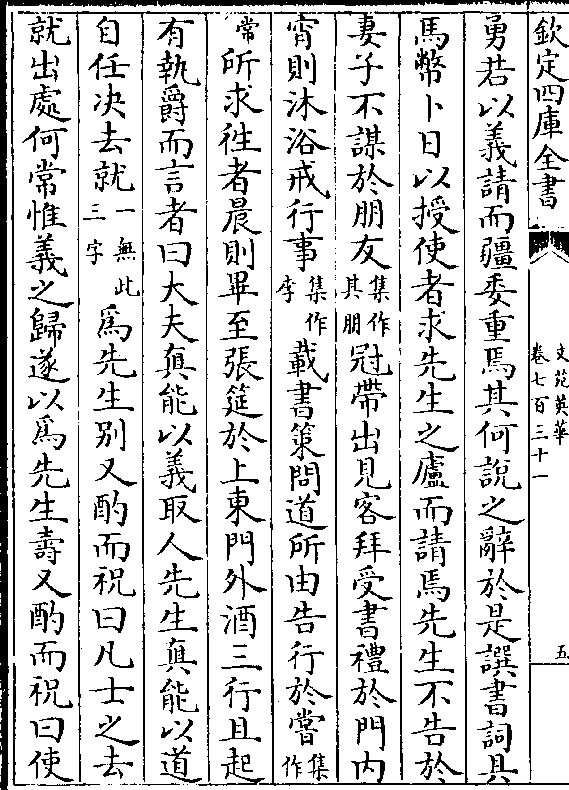 欽定四庫全書
文苑英華
卷七百三十一
五
勇若以義請而彊委重焉其何說之辭於是譔書詞具
馬幣卜日以授使者求先生之廬而請焉先生不告於
妻子不謀於朋友集作其朋冠帶出見客拜受書禮於門內
宵則沐浴戒行事集作李載書策問道所由告行於嘗集作
常所求徃者晨則畢至張筵於上東門外酒三行且起
有執爵而言者曰大夫真能以義取人先生真能以道
自任决去就一無此三字為先生别又酌而祝曰凡士之去
就出處何常惟義之歸遂以為先生壽又酌而祝曰使